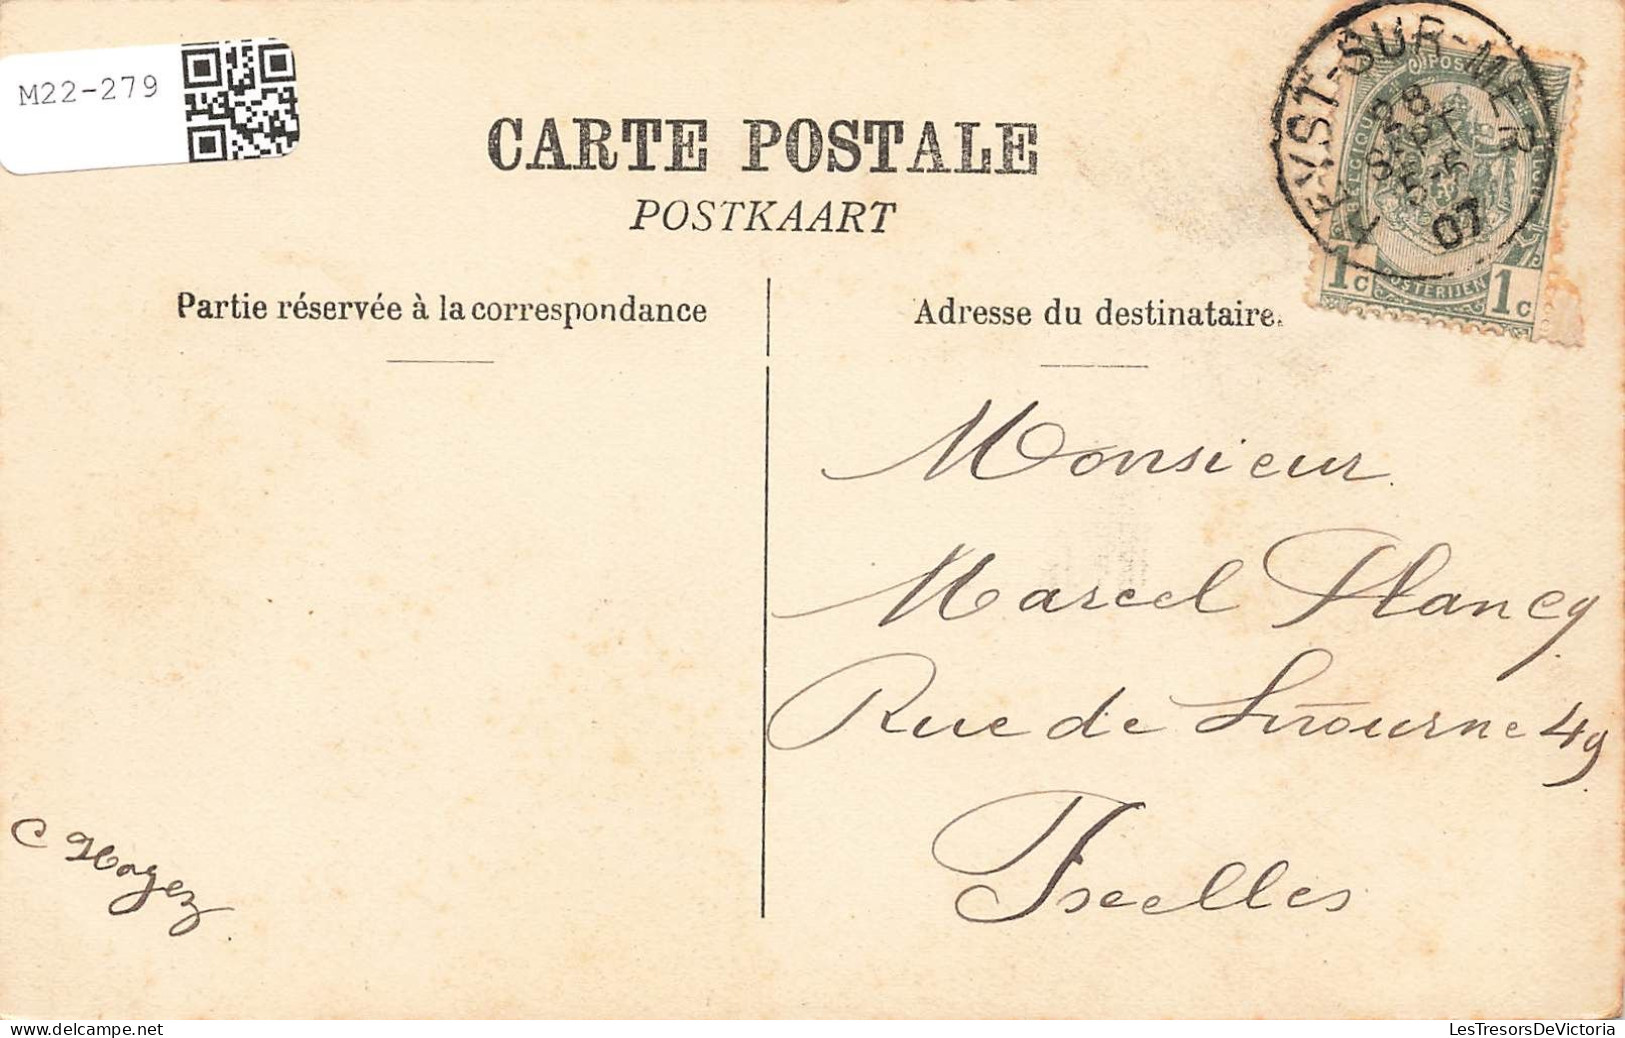 M22-279
CARTE POSTALE
POSTKAART
HEYST-SUR-MER
28
SEPT
5-5
07
POST
BELGIQUE
BELGIE
POSTERIJEN
1c 1c
Partie réservée à la correspondance
Adresse du destinataire.
Monsieur
Marcel Plancq
Rue de 49
Ixelles
C Hoyez
LesTresorsDeVictoria
delcampe.net